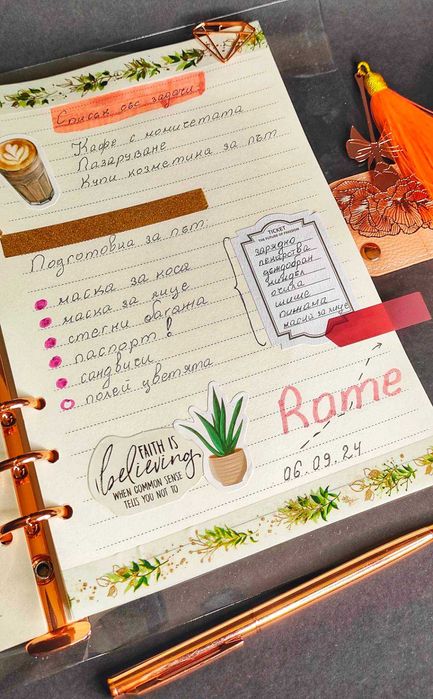 Списък със задачи:
Кафе с момичетата
Пазаруване
Купи козметика за път
Подготовка за път:
маска за коса
маска за лице
стегни багажа
паспорт!
сандвичи
полей цветята
TICKET
THE FUTURE OF FREEDOM
зарядно
лекарства
дъждобран
миндал
очила
шише
пижама
маски за лице
FAITH IS
believing
WHEN COMMON SENSE
TELLS YOU NOT TO
Rome
06.09.24